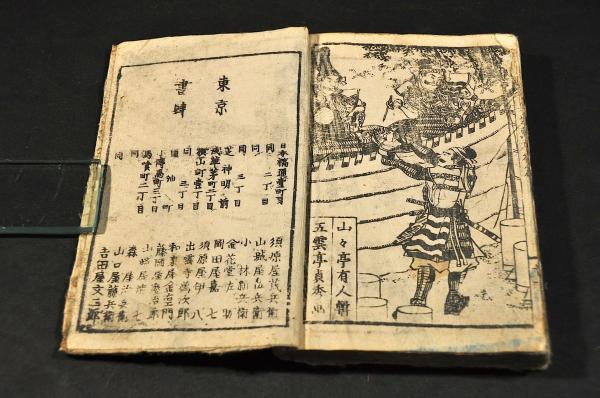 山々亭有人輯
五雲亭貞秀画
東京
書肆
日本橋通壹町目 須原屋茂兵衛
同 二丁目 山城屋佐兵衛
同 小林新兵衛
同 三丁目 金花堂佐助
芝神明前 岡田屋嘉七
浅草茅町二丁目 須原屋伊八
横山町壹丁目 出雲寺萬次郎
同 三丁目 和泉屋金右衛門
通油町 藤岡屋慶治郎
小傳馬町三丁目 山崎屋清七
馬喰町二丁目 森屋治兵衛
同 山口屋藤兵衛
吉田屋文三郎